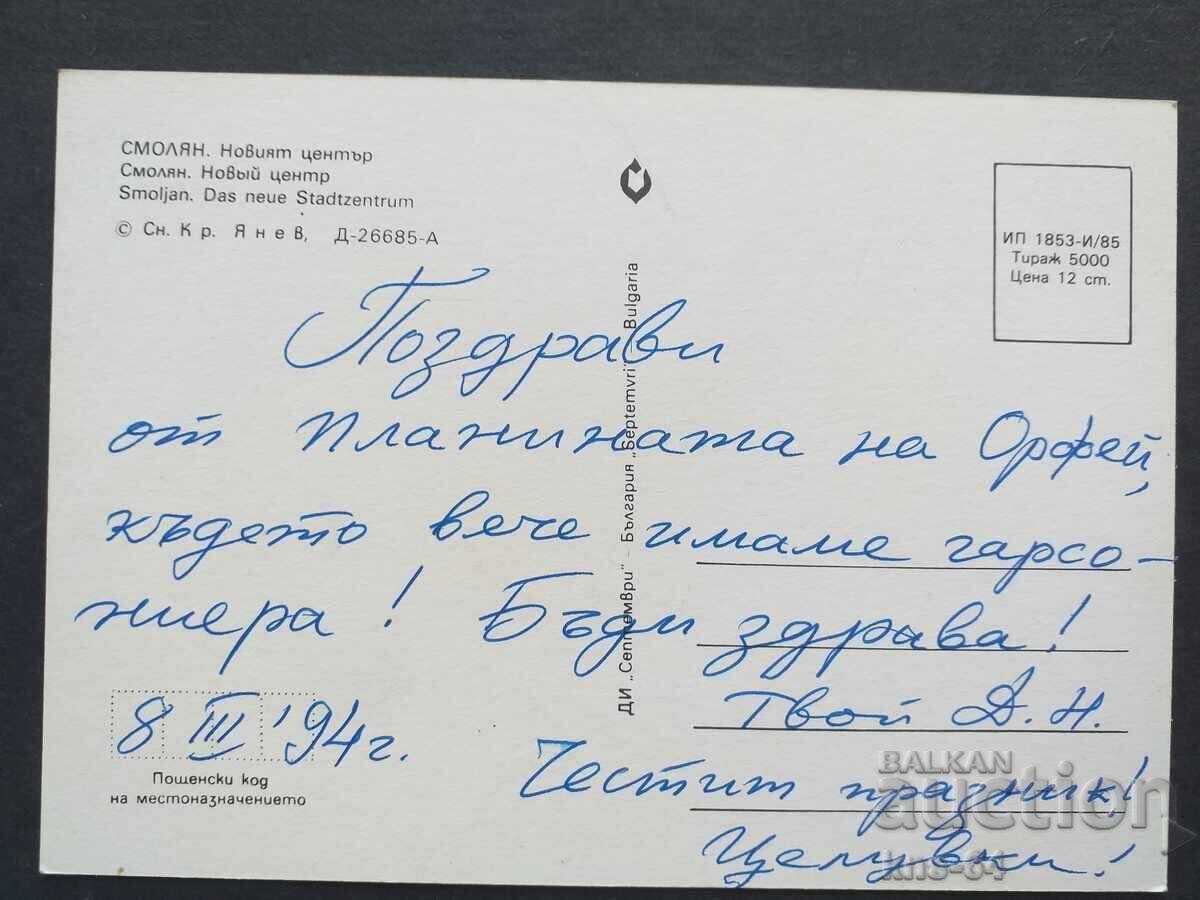 СМОЛЯН. Новият център
Смолян. Новый центр
Smoljan. Das neue Stadtzentrum
© Сн. Кр. Янев, Д-26685-А
ИП 1853-И/85
Тираж 5000
Цена 12 ст.
ДИ „Септември" - България „Septemvri" Bulgaria
Поздрави
от планината на Орфей,
където вече имаме гарсо-
ниера! Бъди здрава!
Твой Д. Н.
8 III '94г.
Честит празник!
Целувки!
Пощенски код
на местоназначението
BALKAN
auction
kns-64